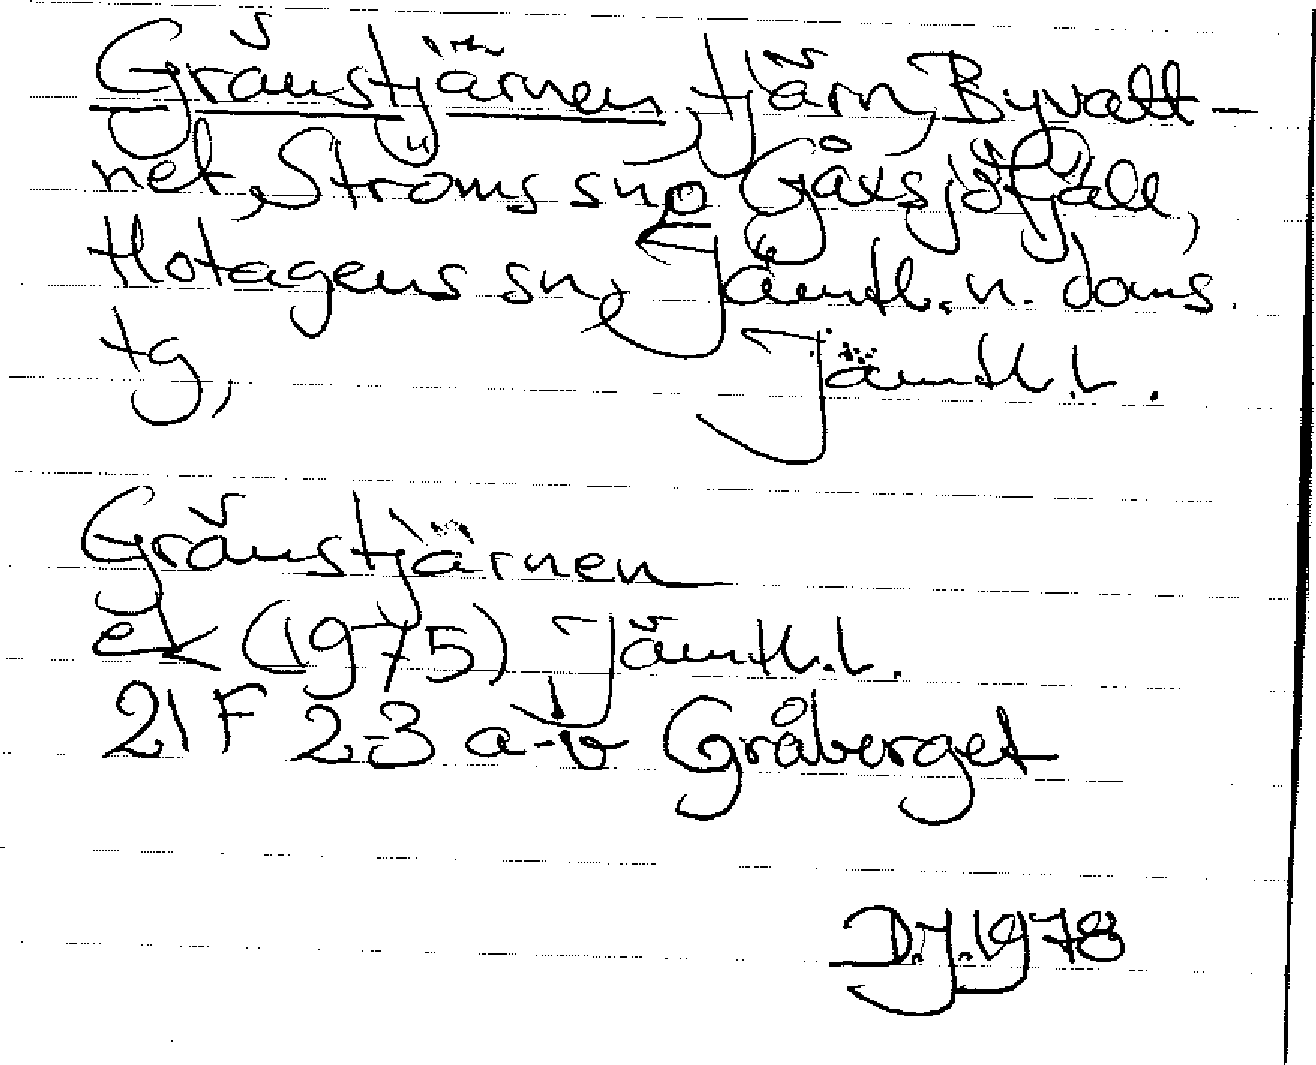 Gräustjärnen, tjärn, Byvatt-
net, Ströms sn o Gåxsjöfjäll,
Hotagens sn, Jämtl. n. doms.
tg, Jämtl. l.
Gräustjärnen
ek (1975) Jämtl. l.
21 F 2-3 a-b Gråberget
D.J. 1978